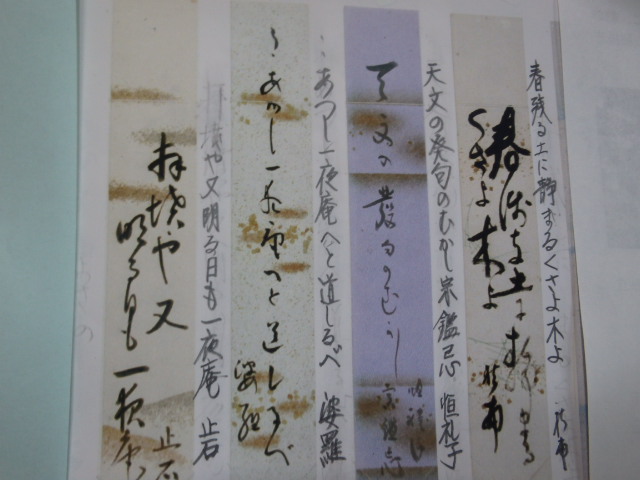 春残る土に静まるくさよ木よ
春残る土に
くさよ木よ
天文の発句のむかし宗鑑忌 恒礼子
天文の発句のむかし
宗鑑忌
あつし一夜庵へと道しるべ 婆羅
あつし一夜庵へと道しるべ
婆羅
や又明る日も一夜庵 止石
や又
明る日も一夜庵
止石